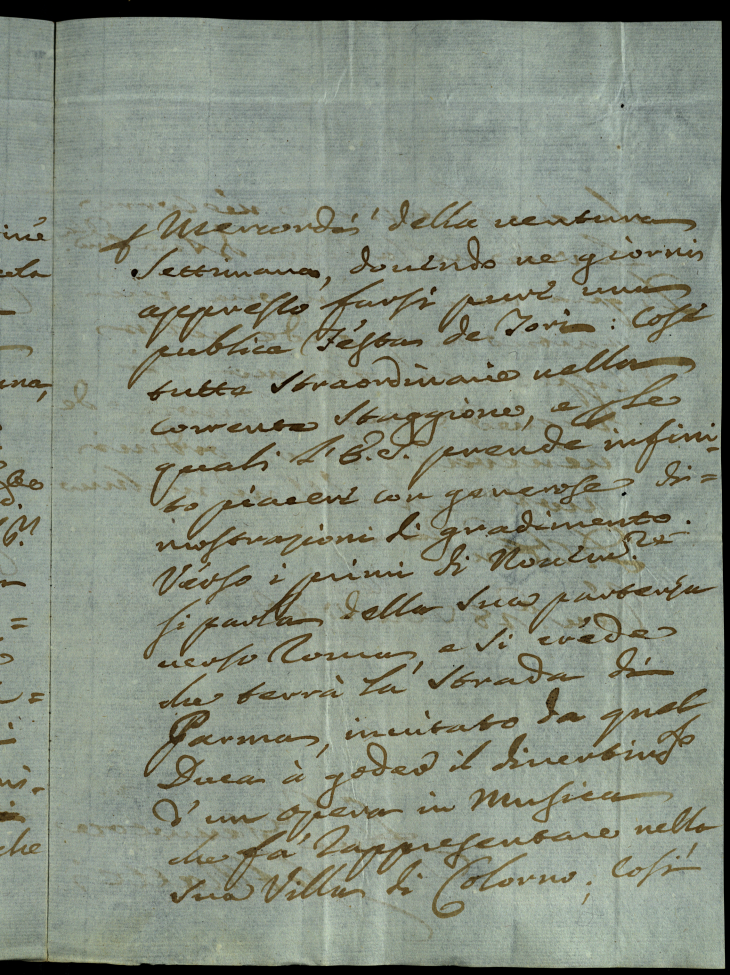 Mercordì della ventura
Settimana, dovendo ne giorni
appresso farsi pure una
publica Festa de Tori: Cose
tutte straordinarie nella
corrente Staggione, e
quali l'E.S. prende infini-
to piacere con generose di=
mostrazioni di gradimento.
Verso i primi di Novem.re
si parla della sua partenza
verso Roma, e si crede
che terrà la strada di
Parma, invitato da quel
Duca à goder il divertim.to
d'un opera in Musica
che fà rappresentare nella
sua Villa di Colorno, così